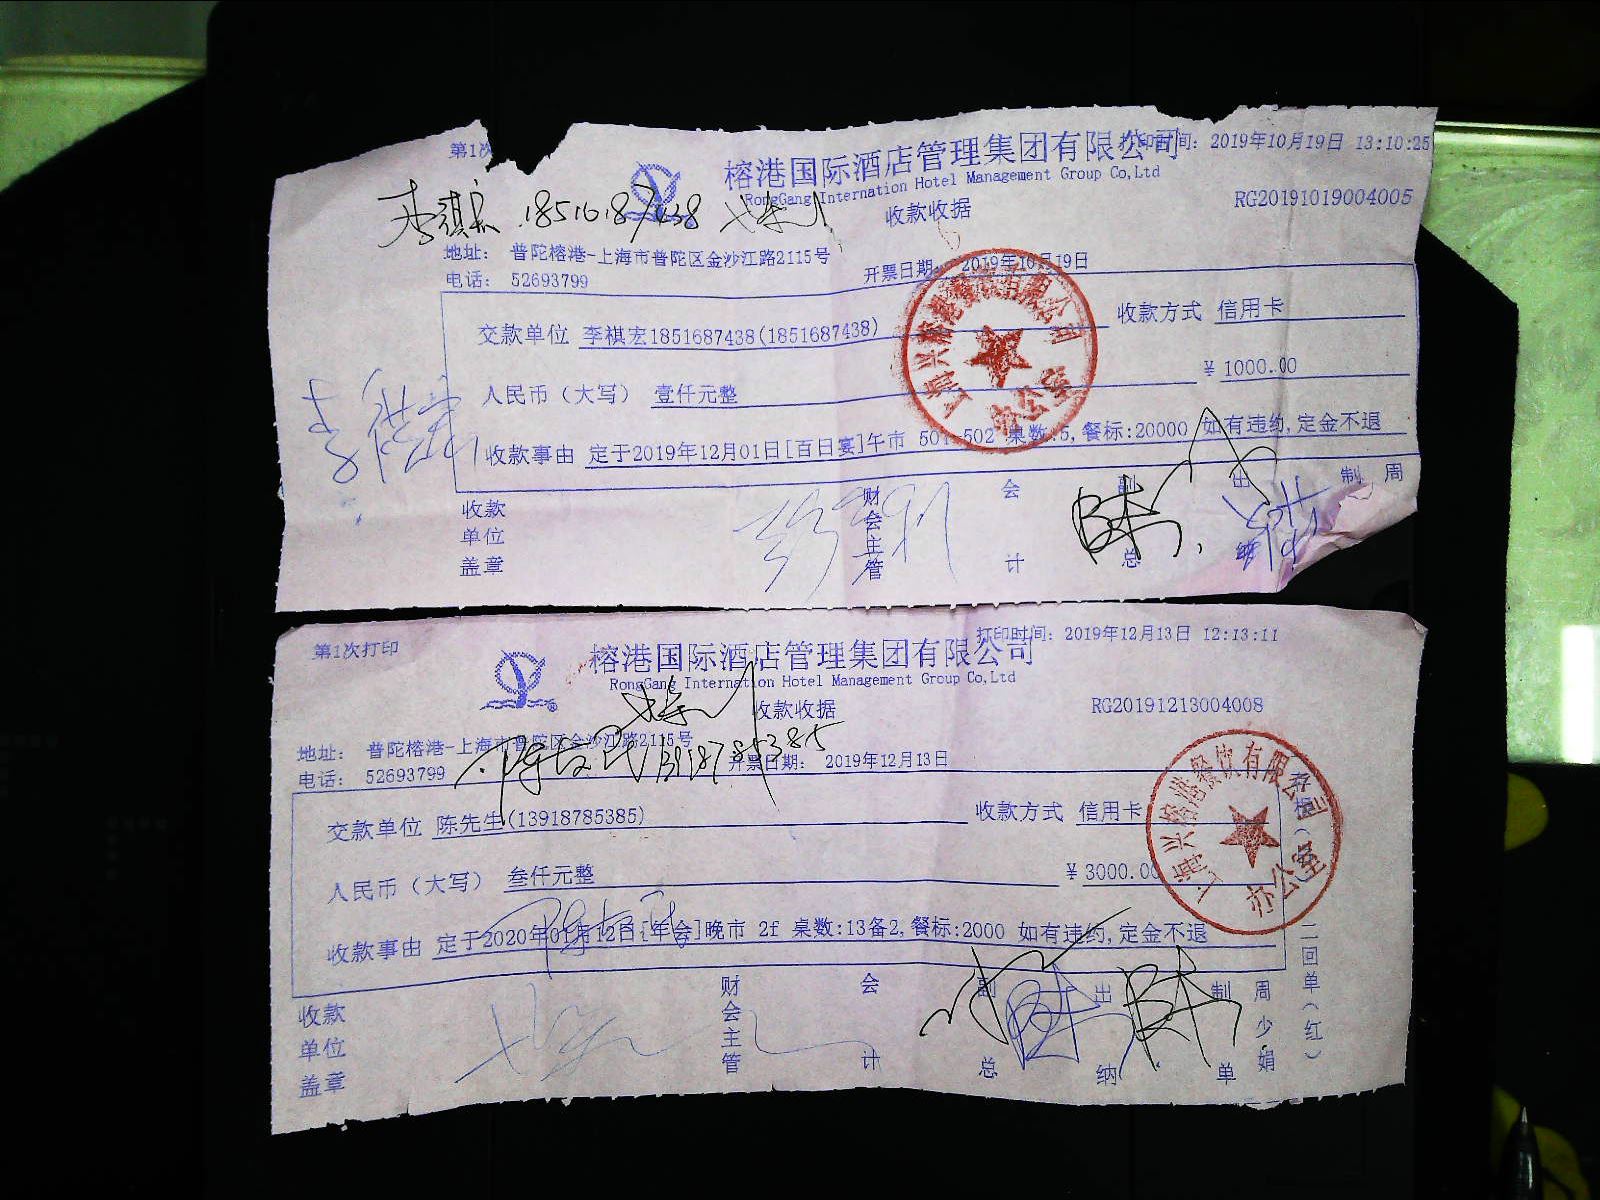 第1次
榕港国际酒店管理集团有限公司
打印时间: 2019年10月19日 13:10:25
RongGang Internation Hotel Management Group Co,Ltd
收款收据
RG20191019004005
李祺宏
地址: 普陀榕港-上海市普陀区金沙江路2115号
电话: 52693799
开票日期: 2019年10月19日
交款单位 李祺宏1851687438(1851687438)
收款方式 信用卡
人民币(大写) 壹仟元整
¥ 1000.00
收款事由 定于2019年12月01日[百日宴]午市 501-502 桌数:5,餐标:20000 如有违约,定金不退
收款单位盖章
财会主管
会计
副总
出纳
制 周
办公室
第1次打印
榕港国际酒店管理集团有限公司
打印时间: 2019年12月13日 12:13:11
RongGang Internation Hotel Management Group Co,Ltd
收款收据
RG20191213004008
地址: 普陀榕港-上海市普陀区金沙江路2115号
电话: 52693799
开票日期: 2019年12月13日
交款单位 陈先生(13918785385)
收款方式 信用卡
人民币(大写) 叁仟元整
¥ 3000.00
收款事由 定于2020年01月12日[年会]晚市 2f 桌数:13备2,餐标:2000 如有违约,定金不退
收款单位盖章
财会主管
会计
副总
出纳
制单
周少娟
二回单(红)
办公室